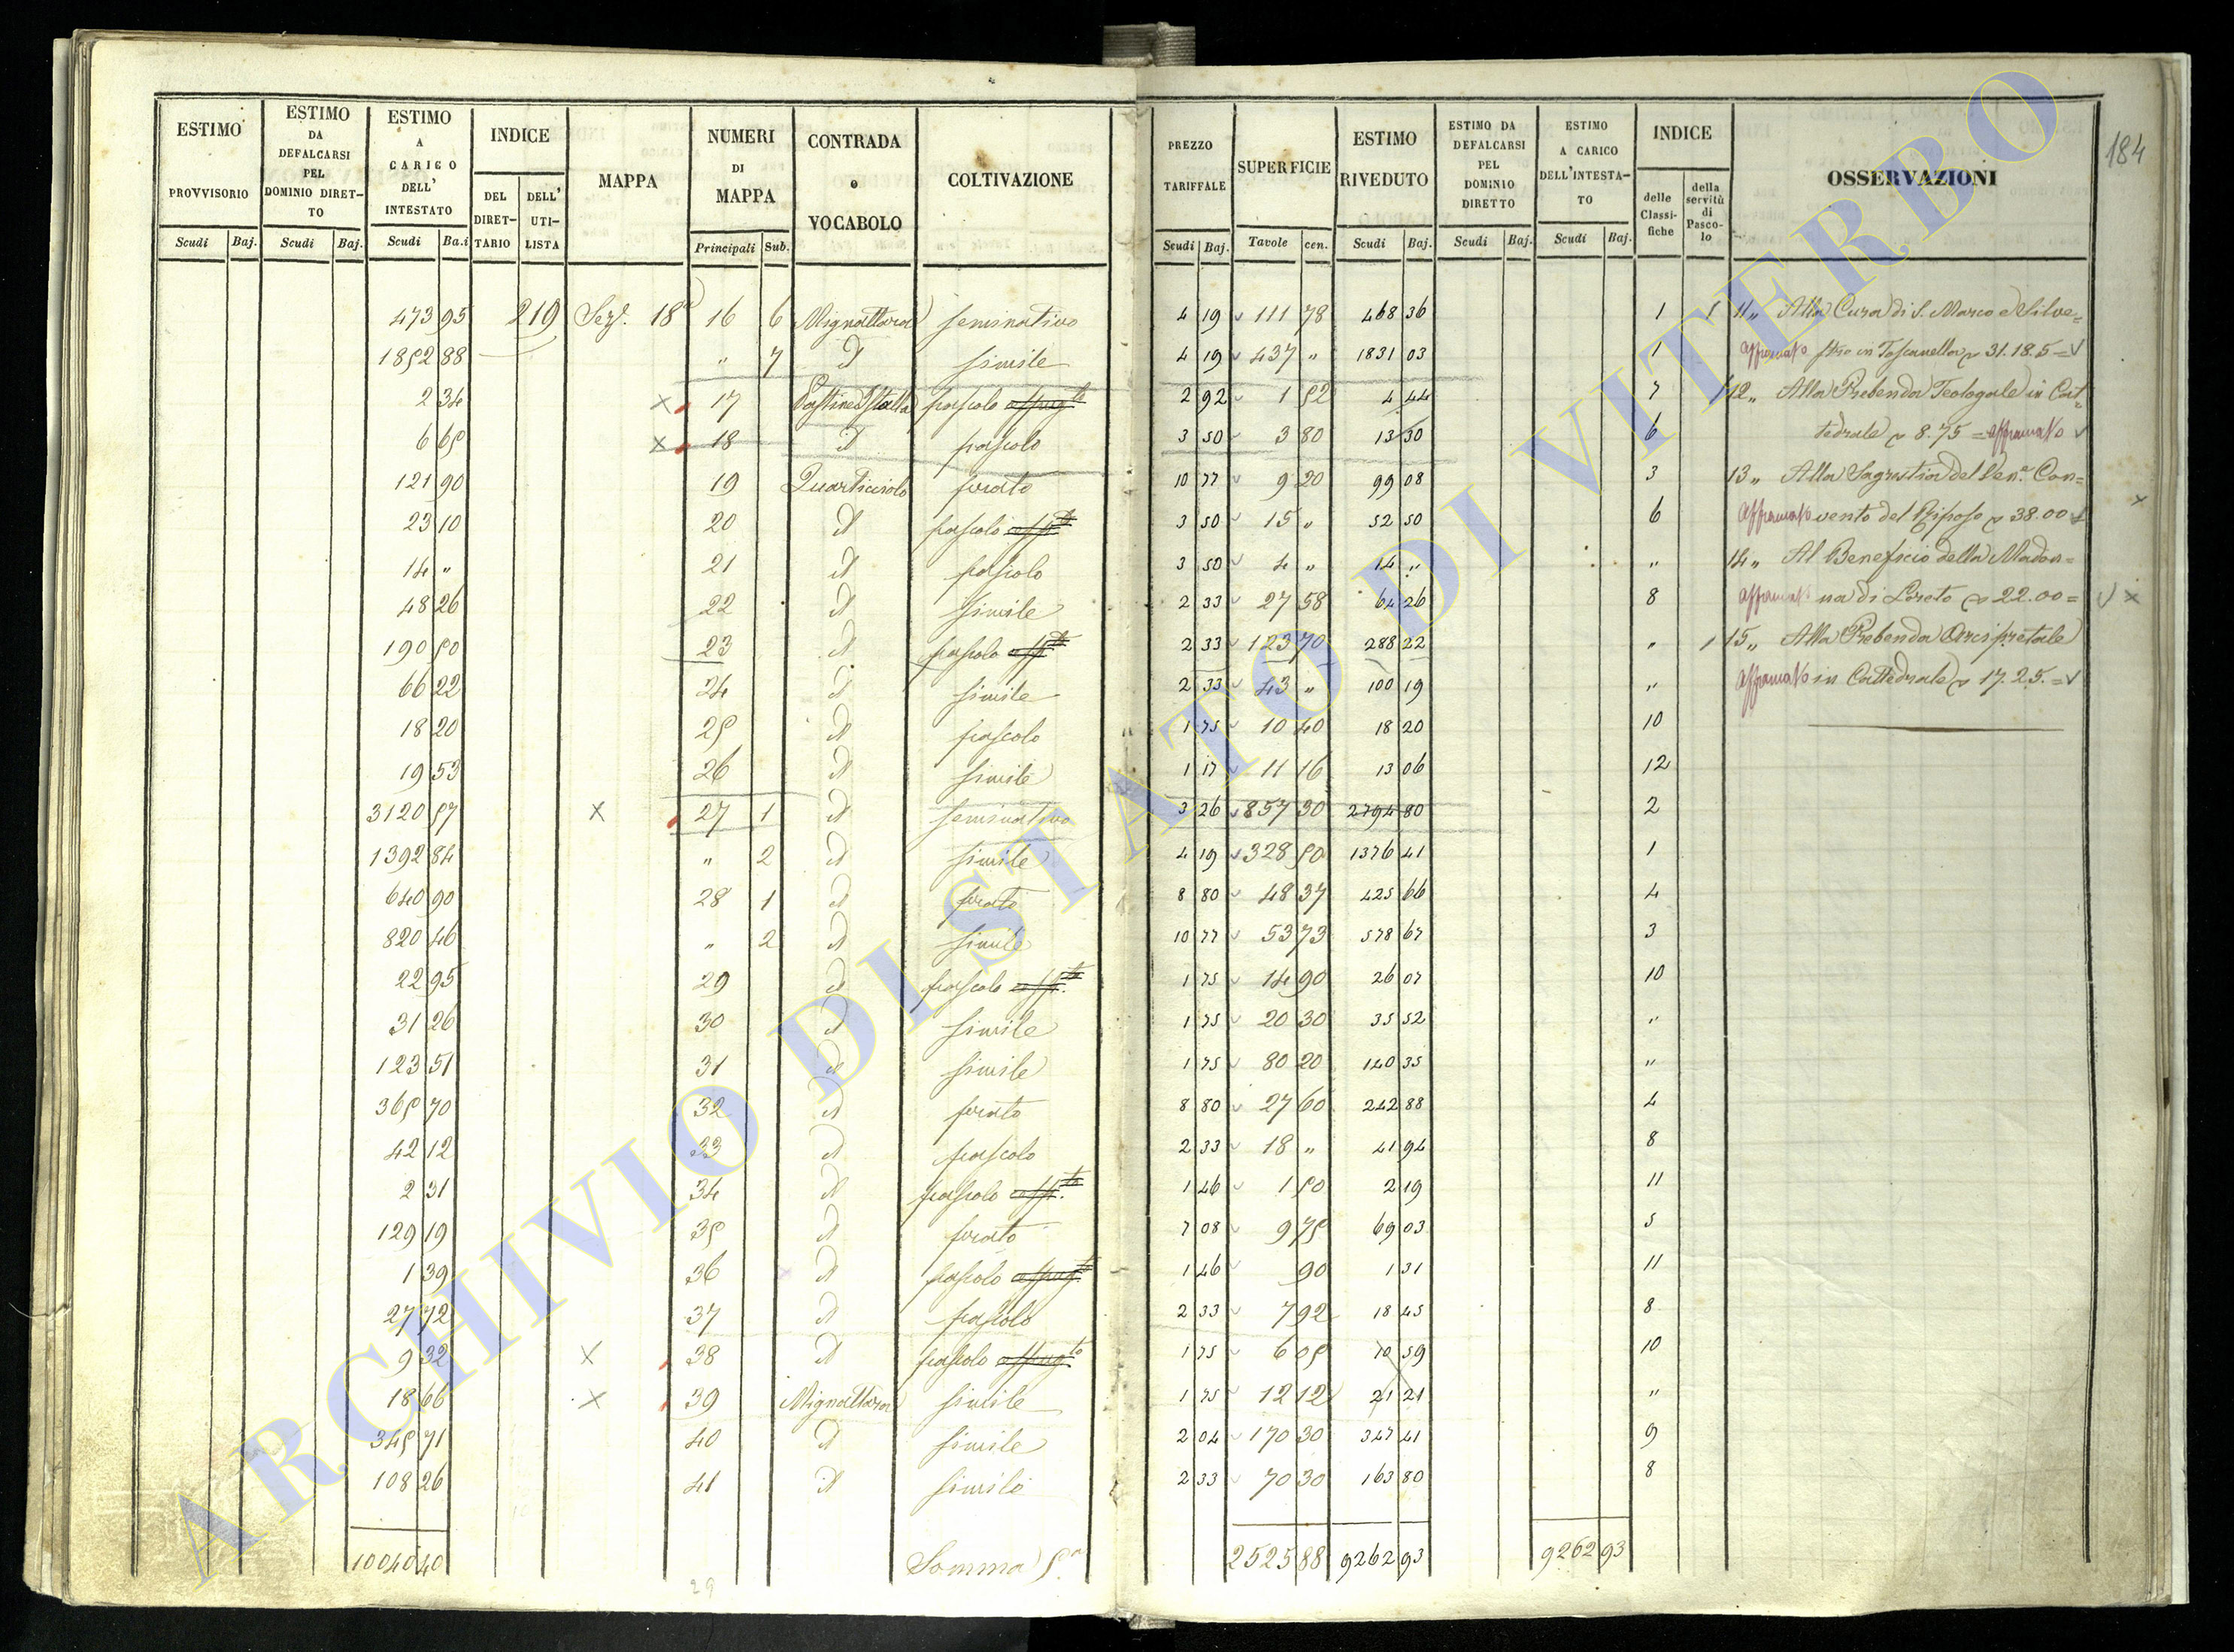 184
ESTIMO PROVVISORIO Scudi Baj.
ESTIMO DA DEFALCARSI PEL DOMINIO DIRET-TO Scudi Baj.
ESTIMO A CARICO DELL' INTESTATO Scudi Ba.i
INDICE DEL DIRET-TARIO DELL' UTI-LISTA
MAPPA
NUMERI DI MAPPA Principali Sub.
CONTRADA o VOCABOLO
COLTIVAZIONE
PREZZO TARIFFALE Scudi Baj.
SUPERFICIE Tavole cen.
ESTIMO RIVEDUTO Scudi Baj.
ESTIMO DA DEFALCARSI PEL DOMINIO DIRETTO Scudi Baj.
ESTIMO A CARICO DELL'INTESTA-TO Scudi Baj.
INDICE delle Classi-fiche della servitù di Pasco-lo
OSSERVAZIONI
473 95 219 Sez. 18a 16 6 Mignattara seminativo 4 19 111 78 468 36 1 1
1852 88 " 7 d simile 4 19 437 " 1831 03 1
2 34 x 17 pascolo 2 92 1 52 4 44 7
6 65 x 18 d pascolo 3 50 3 80 13 30 6
121 90 19 Quarticciolo prato 10 77 9 20 99 08 3
23 10 20 d pascolo 3 50 15 " 52 50 6
14 " 21 d pascolo 3 50 4 " 14 " "
48 26 22 d simile 2 33 27 58 64 26 8
190 50 23 d pascolo 2 33 123 70 288 22 "
66 22 24 d simile 2 33 43 " 100 19 "
18 20 25 d pascolo 1 75 10 40 18 20 10
19 53 26 d simile 1 17 11 16 13 06 12
3120 57 x 27 1 d seminativo 3 26 857 30 2794 80 2
1392 84 " 2 d simile 4 19 328 50 1376 41 1
640 90 28 1 d prato 8 80 48 37 425 66 4
820 46 " 2 d simile 10 77 53 73 578 67 3
22 95 29 d pascolo 1 75 14 90 26 07 10
31 26 30 d simile 1 75 20 30 35 52 "
123 51 31 d simile 1 75 80 20 140 35 "
365 70 32 d prato 8 80 27 60 242 88 4
42 12 33 d pascolo 2 33 18 " 41 94 8
2 31 34 d pascolo 1 46 1 50 2 19 11
129 19 35 d prato 7 08 9 75 69 03 5
1 39 36 d pascolo 1 46 90 1 31 11
27 72 37 d pascolo 2 33 7 92 18 45 8
9 32 x 38 d pascolo 1 75 6 05 10 59 10
18 66 x 39 Mignattara simile 1 75 12 12 21 21 "
345 71 40 d simile 2 04 170 30 347 41 9
108 26 41 d simile 2 33 70 30 163 80 8
10040 40 Somma 2525 88 9262 93 9262 93
29
11„ Alla Cura di S. Marco e Silve=
affrancato stro in Toscanella 31.18.5=
12„ Alla Prebenda Teologale in Cat=
tedrale 8.75= affrancato
13„ Alla Sagrestia del Ven.e Con=
affrancato vento del Riposo 38.00
14„ Al Beneficio della Madon=
affrancat. na di Loreto 22.00=
15„ Alla Prebenda Arcipretale
affrancato in Cattedrale 17.25.=
ARCHIVIO DI STATO DI VITERBO